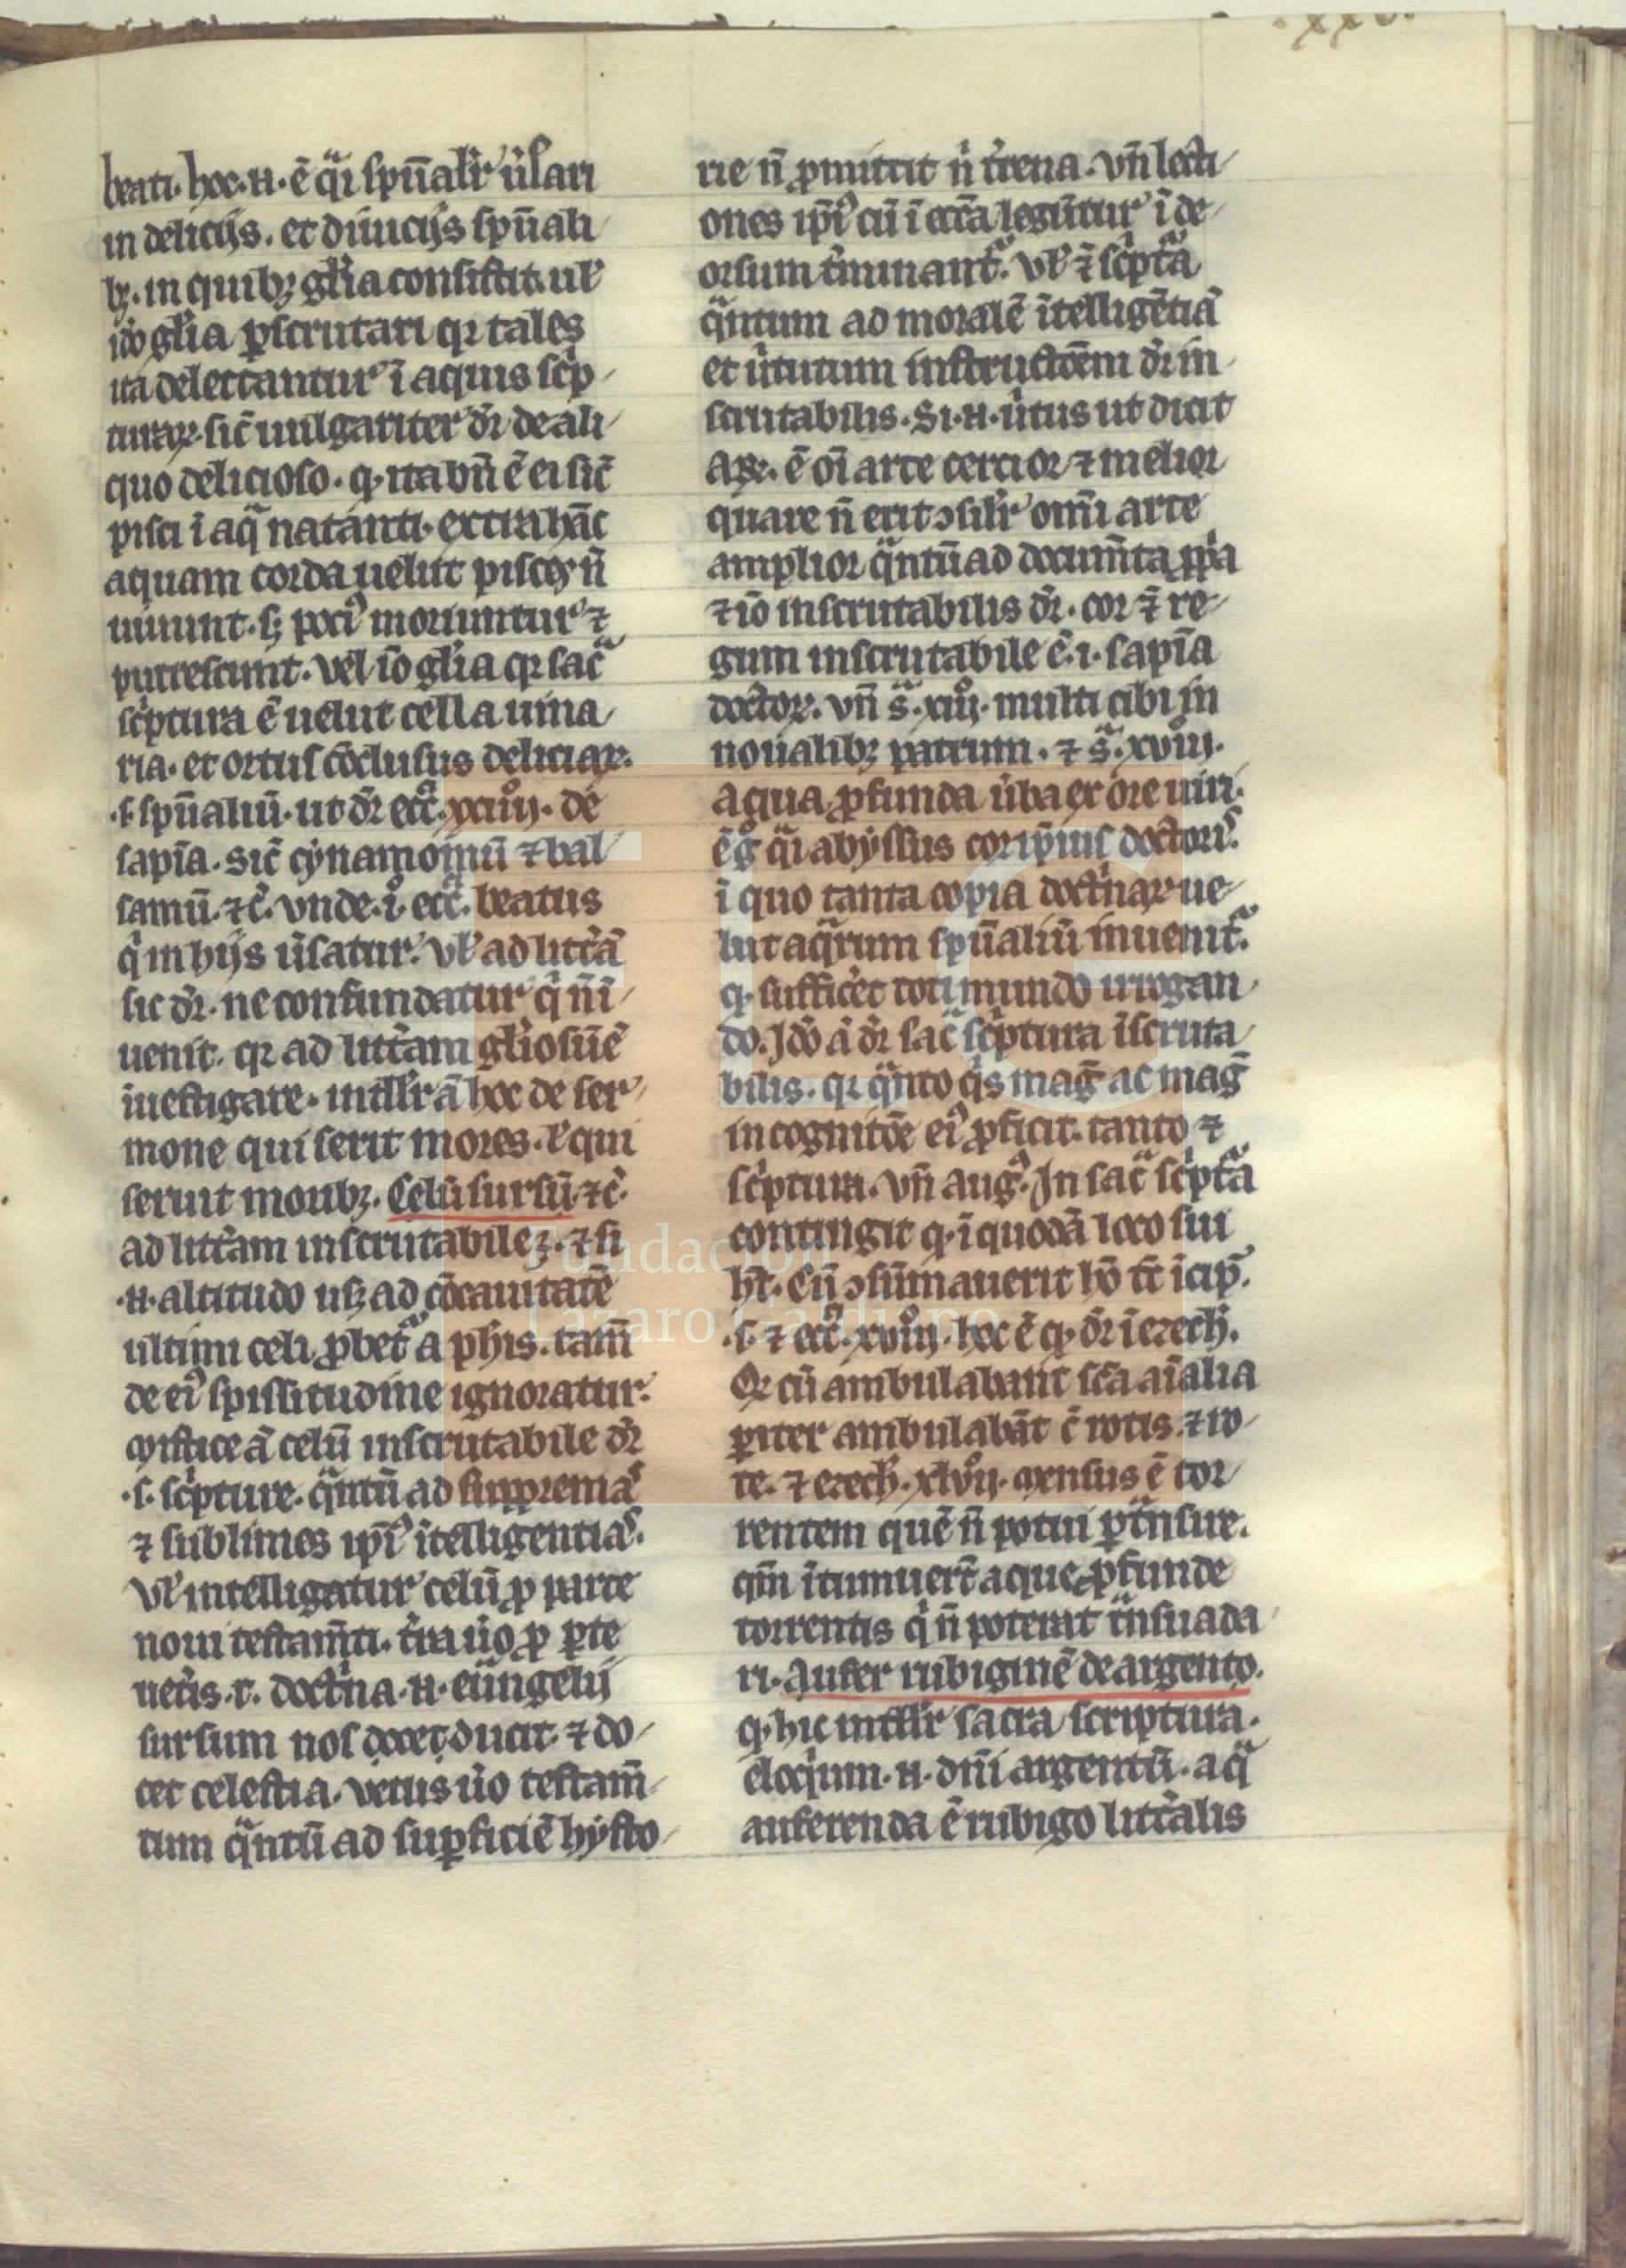 .xxv.
beati. hoc .n. ē q̈i spūalit̉ u̓sari
in delicijs. et diuicijs spūali
bꝫ. in quibꝫ gl̓ia consistit. ul̓
iō gl̓ia ꝑscrutari qꝛ tales
ita delectantur ī aquis sc̓p
turaꝝ. sic̄ uulgariter dr̄ de ali
quo delicioso. ꝙ ita bn̄ ē ei sic̄
pisci ī aq̈ natanti. extra hāc
aquam corda uelut pisces n̄
uiuunt. sꝫ poci᷒ moriuntur ⁊
putrescunt. Vel iō gl̓ia qꝛ sac̈
sc̓ptura ē uelut cella uina
ria. et ortus cōclusus deliciaꝝ.
.s. spūaliū. ut dr̄ ecc̄. xxiiij. de
sapīa. Sic̄ cynamomū ⁊ bal
samū. ⁊c̄. vnde. ecc̄. beatus
q̓ in hijs u̓satur. Vl̓ ad litt̓ā
sic dr̄. ne confundatur q̓ nī
uenit. qꝛ ad litt̓am gl̓iosū ē
īuestigare. intll̓r ā hoc de ser
mone qui serit mores. l̓ qui
seruit moribꝫ. Celū sursū. ⁊c̄.
ad litt̓am inscrutabile ꝫ. ⁊ si
.n. altitudo usꝫ ad cōcauitatē
ultimi celi ꝓbet᷑ a phis. tam̄
de ei᷒ spissitudine ignoratur.
Mistice ā celū inscrutabile dr̄
.s. sc̓pture. q̈ntū ad supremas
⁊ sublimes ipī᷒ ītelligentias.
Vl̓ intelligatur celū ꝓ parte
noui testam̄ti. t̓ra u̓o ꝓ ꝑte
uet̓is. r̄. doct̓na .n. eūngelij
sursum nos docet ducit ⁊ do
cet celestia. vetus u̓o testam̄
tum q̈ntū ad suꝑficiē hysto
rie n̄ ꝓmittit n̄ t̓rena. Vn̄ lecti
ones ipī᷒ cū ī ecc̄a legūtur ī de
orsum t̓minant᷑. Vl̓ ⁊̄ sc̓pt̄a
q̈ntum ad moralē ītelligētiā
et u̓tutum instructōem dr̄ in
scrutabilis. Si .n. u̓tus ut dicit
Ap̄. ē oī arte cercior ⁊ melior
quare n̄ erit ɔsil̓r omī arte
amplior q̈ntū ad docum̄ta ꝓp̓a
⁊ iō inscrutabilis dr̄. cor ⁊̄ re
gum inscrutabile ē .i. sapīa
doctoꝝ. Vn̄ s̈. xiij. multi cibi in
noualibꝫ patrum. ⁊ s̈. xviij.
Aqua ꝓfunda u̓ba ex ore uiri.
ē g̊ q̈i abyssus cor ipsius doctoris.
ī quo tanta copia doct̓naꝝ ue
lut aq̈rum spūaliū inuenit᷑.
ꝙ sufficeret toti mundo irrigan
do. Jdō ā dr̄ sac̈ sc̓ptura īscruta
bilis. qꝛ q̈nto q̓s mag̓ ac mag̓
in cognitōe ei᷒ ꝓficit. tanto ⁊
sc̓ptura. Vn̄ aug᷒. Jn sac̈ sc̓pt̄a
contingit ꝙ ī quodā loco sui
hr̄. Cū ɔsūmauerit hō tc̄ īcip̄.
.s. ⁊ ecc̄. xviij. hoc ē ꝙ dr̄ ī ezech̄.
Qꝛ cū ambulabant sc̄a aīalia
ꝑiter ambulabāt ⁊̄ rotis. ⁊ ro
te. ⁊ ezech̄. xlvij. mensus ē tor
rentem quē n̄ potui ꝑt̓nsire.
qm̄ ītumuer̄t aque ꝓfunde
torrentis q̓ n̄ poterat t̓nsuada
ri. Aufer rubiginē de argento.
ꝙ hic intll̓r sacra scriptura.
eloq̓um .n. dn̄i argentū. a q̈
auferenda ē rubigo litt̓alis
Fundación
Lázaro Galdiano